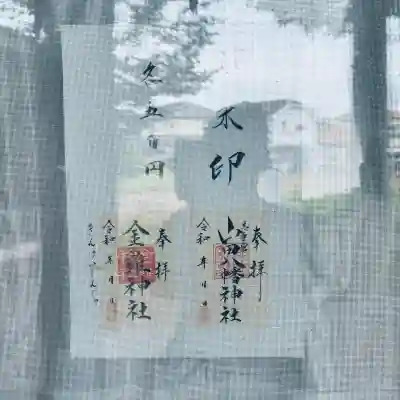 朱印
各五百円
奉拝
八幡神社
令和 年 月 日
奉拝
神社
令和 年 月 日